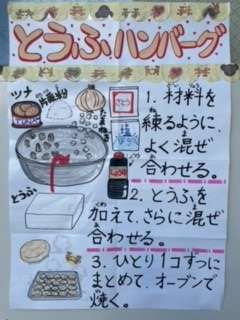 とうふハンバーグ
ツナ
たまねぎ
とうふ
1. 材料を
練るように、
よく混ぜ
合わせる。
2. とうふを
加えて、さらに混ぜ
合わせる。
3. ひとり1コずつに
まとめて、オーブンで
焼く。